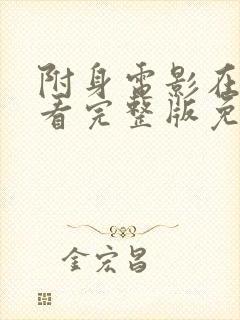 附身雷影在
看完整版免
金宏昌